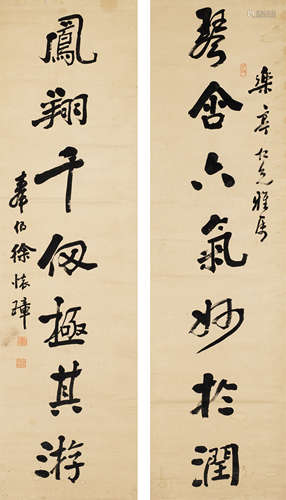 琴含六氣妙於潤
樂亭仁兄雅屬
鳳翔千仞極其游
徐懷璋